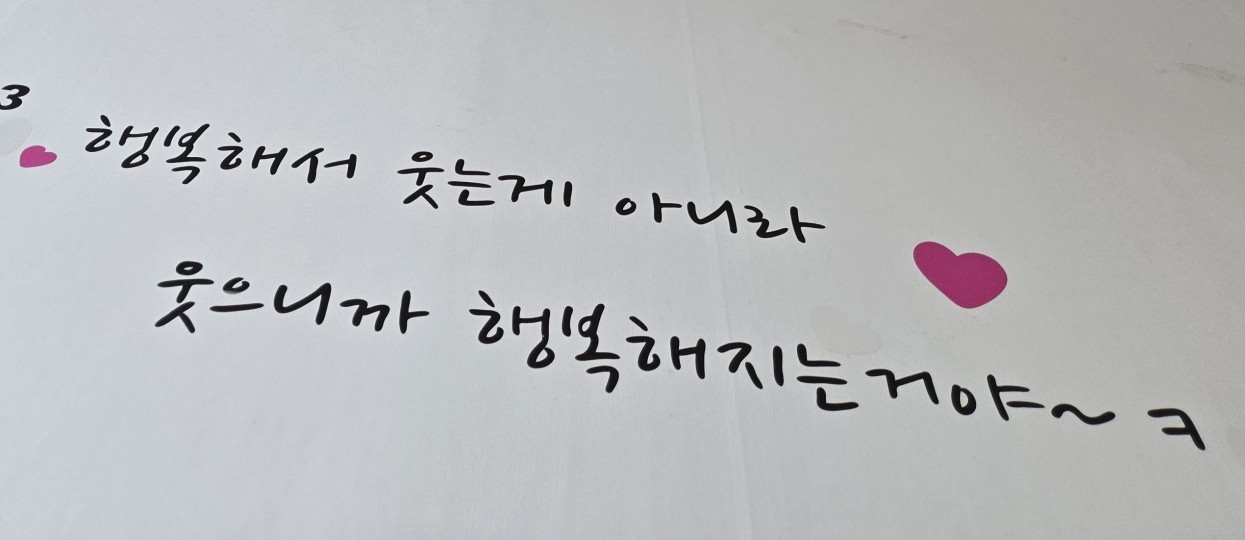 3
행복해서 웃는게 아니라
웃으니까 행복해지는거야~ ㅋ